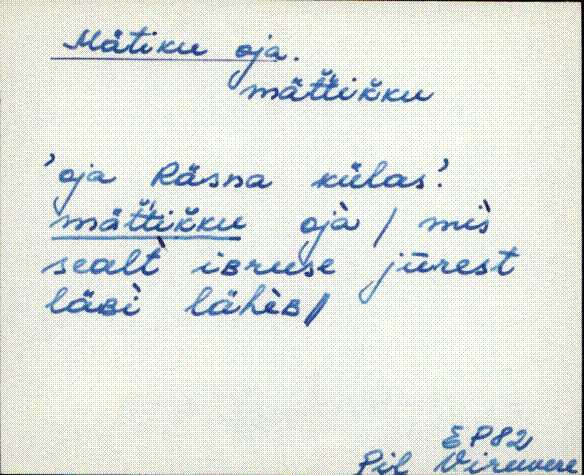 Mätiku oja.
mät̆t̆ik̆ku
'oja Räsna külas'.
mät̆t̆ik̆ku ojà / mis̀
sealt̀ iʙruse jūrest
läʙì lähèʙ/
EP82
Pil Viruvere